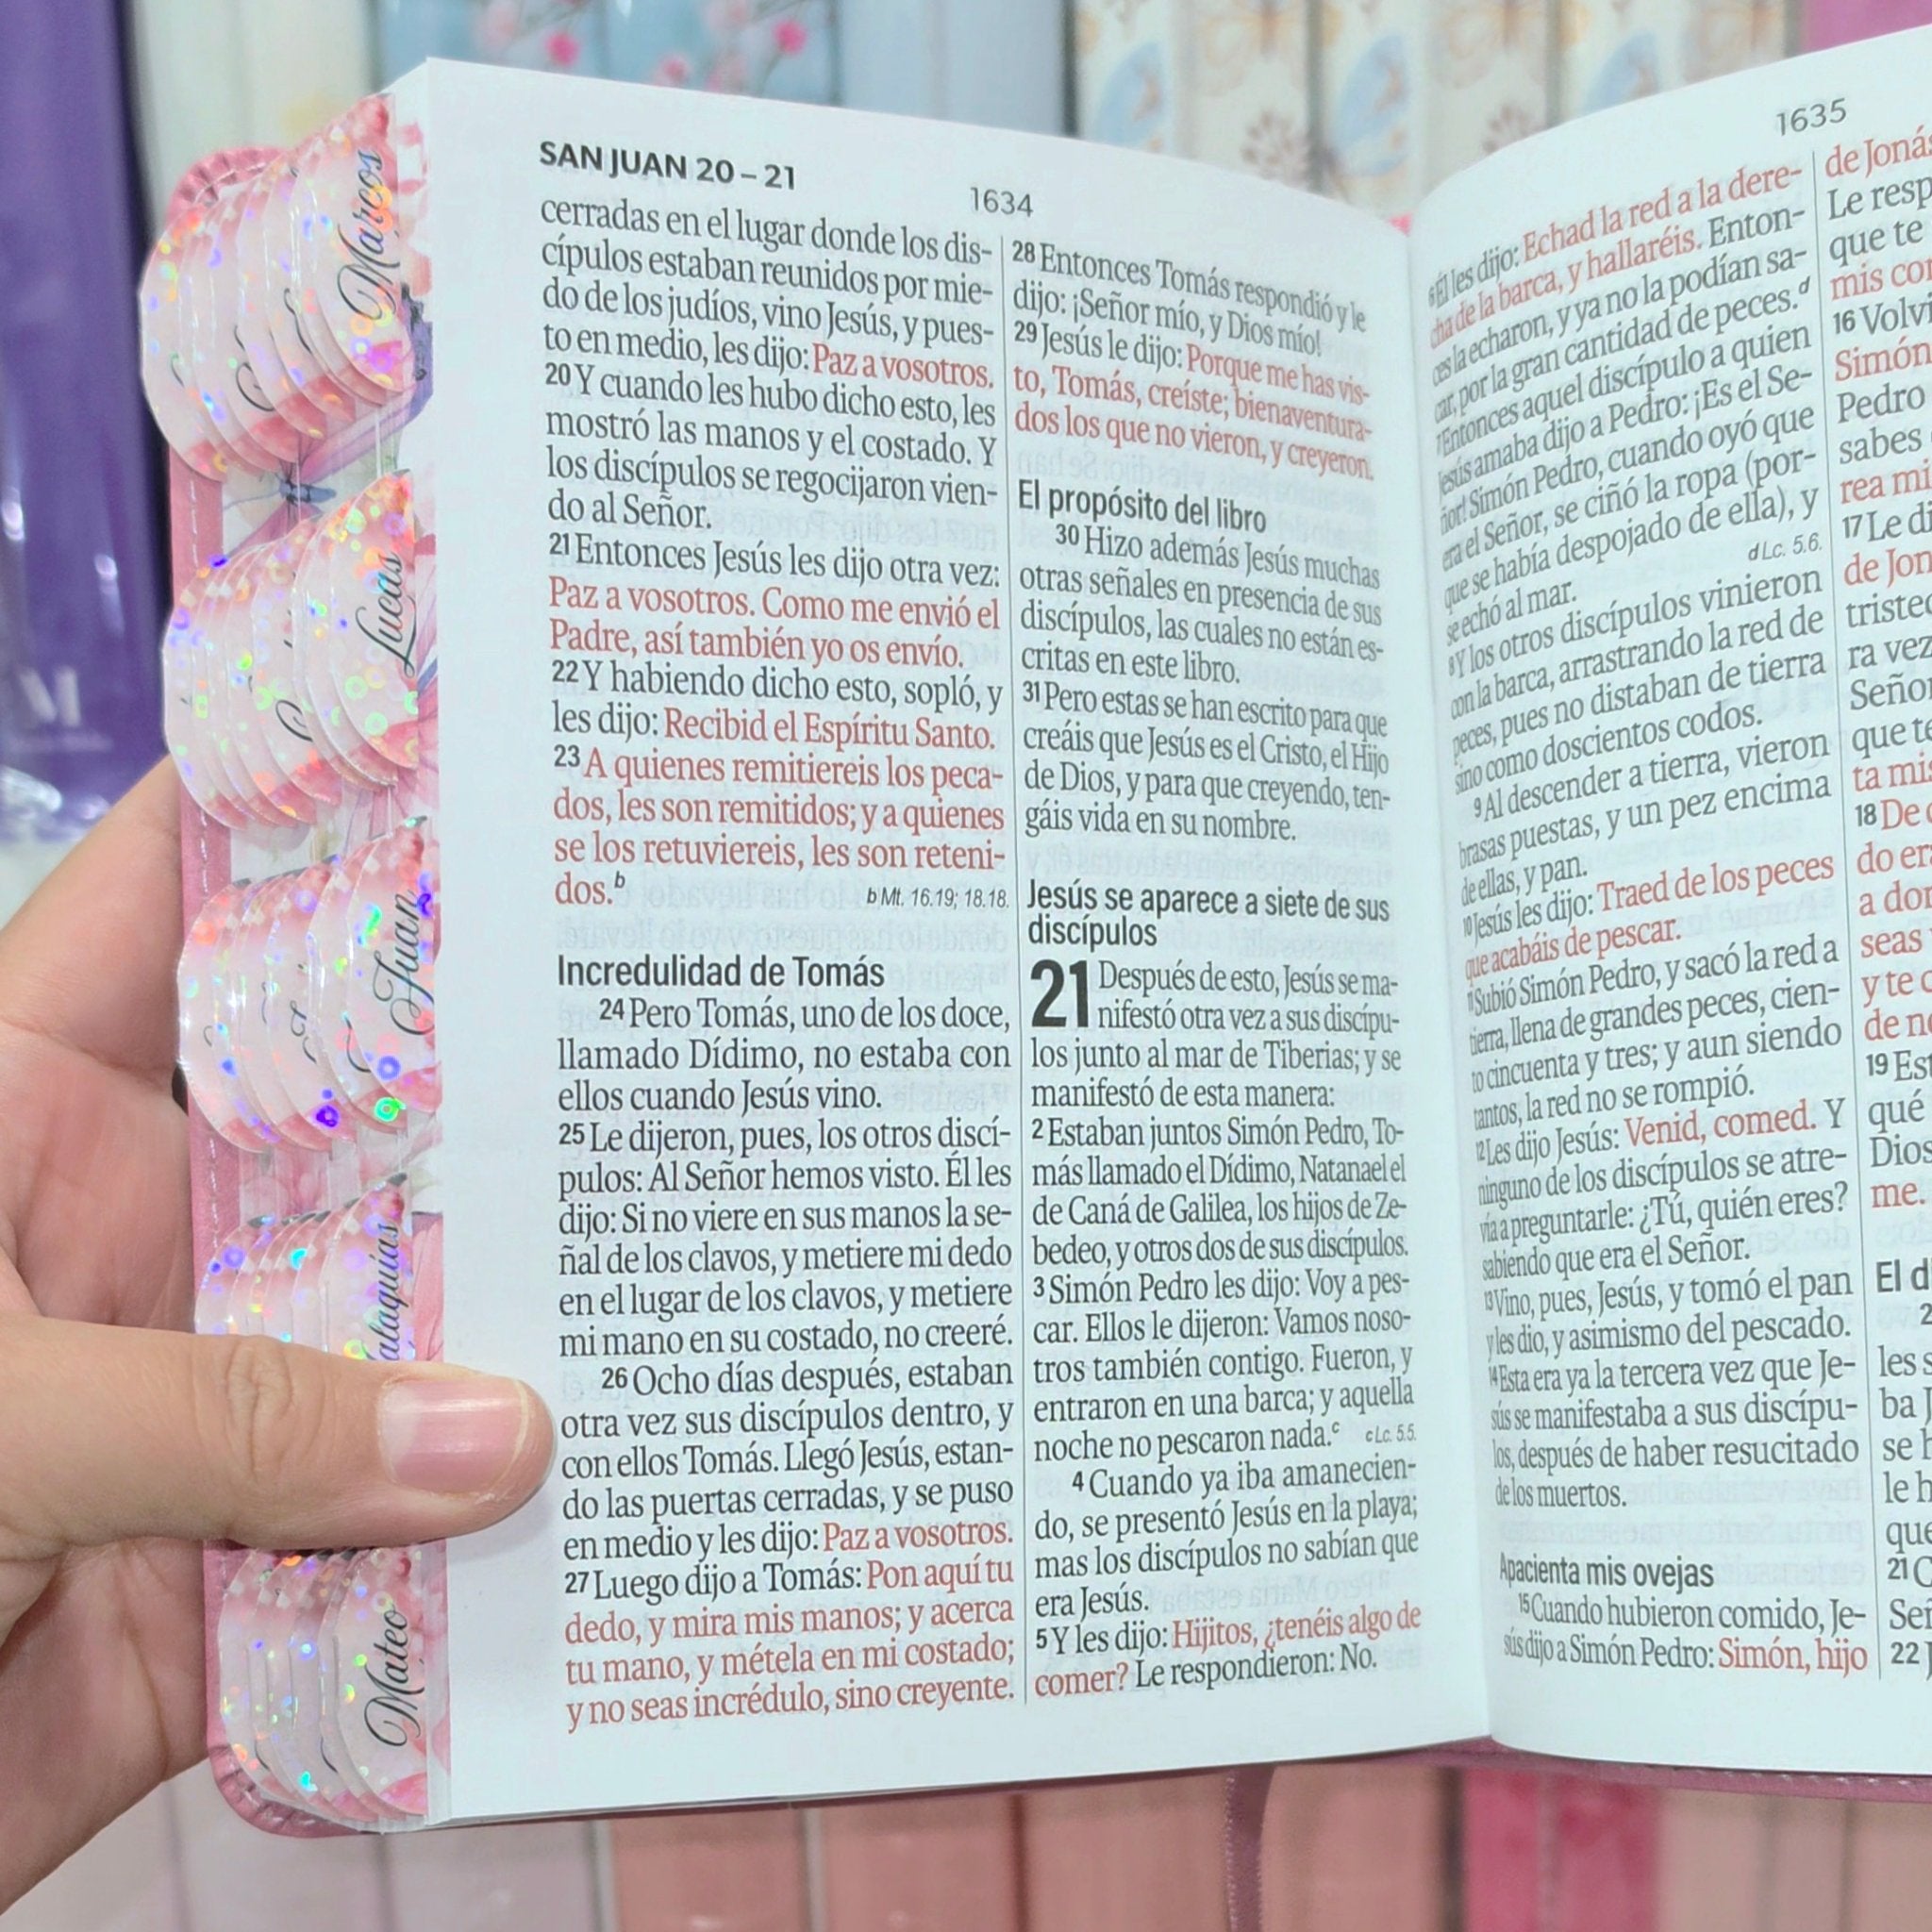 Marcos
Lucas
Juan
alaquías
Mateo
SAN JUAN 20 – 21
1634
cerradas en el lugar donde los dis-
cípulos estaban reunidos por mie-
do de los judíos, vino Jesús, y pues-
to en medio, les dijo: Paz a vosotros.
20 Y cuando les hubo dicho esto, les
mostró las manos y el costado. Y
los discípulos se regocijaron vien-
do al Señor.
21 Entonces Jesús les dijo otra vez:
Paz a vosotros. Como me envió el
Padre, así también yo os envío.
22 Y habiendo dicho esto, sopló, y
les dijo: Recibid el Espíritu Santo.
23 A quienes remitiereis los peca-
dos, les son remitidos; y a quienes
se los retuviereis, les son reteni-
dos.b b Mt. 16.19; 18.18.
Incredulidad de Tomás
24 Pero Tomás, uno de los doce,
llamado Dídimo, no estaba con
ellos cuando Jesús vino.
25 Le dijeron, pues, los otros discí-
pulos: Al Señor hemos visto. Él les
dijo: Si no viere en sus manos la se-
ñal de los clavos, y metiere mi dedo
en el lugar de los clavos, y metiere
mi mano en su costado, no creeré.
26 Ocho días después, estaban
otra vez sus discípulos dentro, y
con ellos Tomás. Llegó Jesús, estan-
do las puertas cerradas, y se puso
en medio y les dijo: Paz a vosotros.
27 Luego dijo a Tomás: Pon aquí tu
dedo, y mira mis manos; y acerca
tu mano, y métela en mi costado;
y no seas incrédulo, sino creyente.
28 Entonces Tomás respondió y le
dijo: ¡Señor mío, y Dios mío!
29 Jesús le dijo: Porque me has vis-
to, Tomás, creíste; bienaventura-
dos los que no vieron, y creyeron.
El propósito del libro
30 Hizo además Jesús muchas
otras señales en presencia de sus
discípulos, las cuales no están es-
critas en este libro.
31 Pero estas se han escrito para que
creáis que Jesús es el Cristo, el Hijo
de Dios, y para que creyendo, ten-
gáis vida en su nombre.
Jesús se aparece a siete de sus
discípulos
21 Después de esto, Jesús se ma-
nifestó otra vez a sus discípu-
los junto al mar de Tiberias; y se
manifestó de esta manera:
2 Estaban juntos Simón Pedro, To-
más llamado el Dídimo, Natanael el
de Caná de Galilea, los hijos de Ze-
bedeo, y otros dos de sus discípulos.
3 Simón Pedro les dijo: Voy a pes-
car. Ellos le dijeron: Vamos noso-
tros también contigo. Fueron, y
entraron en una barca; y aquella
noche no pescaron nada.c c Lc. 5.5.
4 Cuando ya iba amanecien-
do, se presentó Jesús en la playa;
mas los discípulos no sabían que
era Jesús.
5 Y les dijo: Hijitos, ¿tenéis algo de
comer? Le respondieron: No.
1635
6 Él les dijo: Echad la red a la dere-
cha de la barca, y hallaréis. Enton-
ces la echaron, y ya no la podían sa-
car, por la gran cantidad de peces.d
7 Entonces aquel discípulo a quien
Jesús amaba dijo a Pedro: ¡Es el Se-
ñor! Simón Pedro, cuando oyó que
era el Señor, se ciñó la ropa (por-
que se había despojado de ella), y
se echó al mar. d Lc. 5.6.
8 Y los otros discípulos vinieron
con la barca, arrastrando la red de
peces, pues no distaban de tierra
sino como doscientos codos.
9 Al descender a tierra, vieron
brasas puestas, y un pez encima
de ellas, y pan.
10 Jesús les dijo: Traed de los peces
que acabáis de pescar.
11 Subió Simón Pedro, y sacó la red a
tierra, llena de grandes peces, cien-
to cincuenta y tres; y aun siendo
tantos, la red no se rompió.
12 Les dijo Jesús: Venid, comed. Y
ninguno de los discípulos se atre-
vía a preguntarle: ¿Tú, quién eres?
sabiendo que era el Señor.
13 Vino, pues, Jesús, y tomó el pan
y les dio, y asimismo del pescado.
14 Esta era ya la tercera vez que Je-
sús se manifestaba a sus discípu-
los, después de haber resucitado
de los muertos.
Apacienta mis ovejas
15 Cuando hubieron comido, Je-
sús dijo a Simón Pedro: Simón, hijo
de Joná
Le resp
que te
mis co
16 Volv
Simón
Pedro
sabes
rea mi
17 Le di
de Jon
triste
ra vez
Señor
que te
ta mi
18 De
do er
a do
seas
y te
de n
19 Est
qué
Dios
me.
El d
2
les s
ba J
se h
le h
que
21 C
Señ
22 J